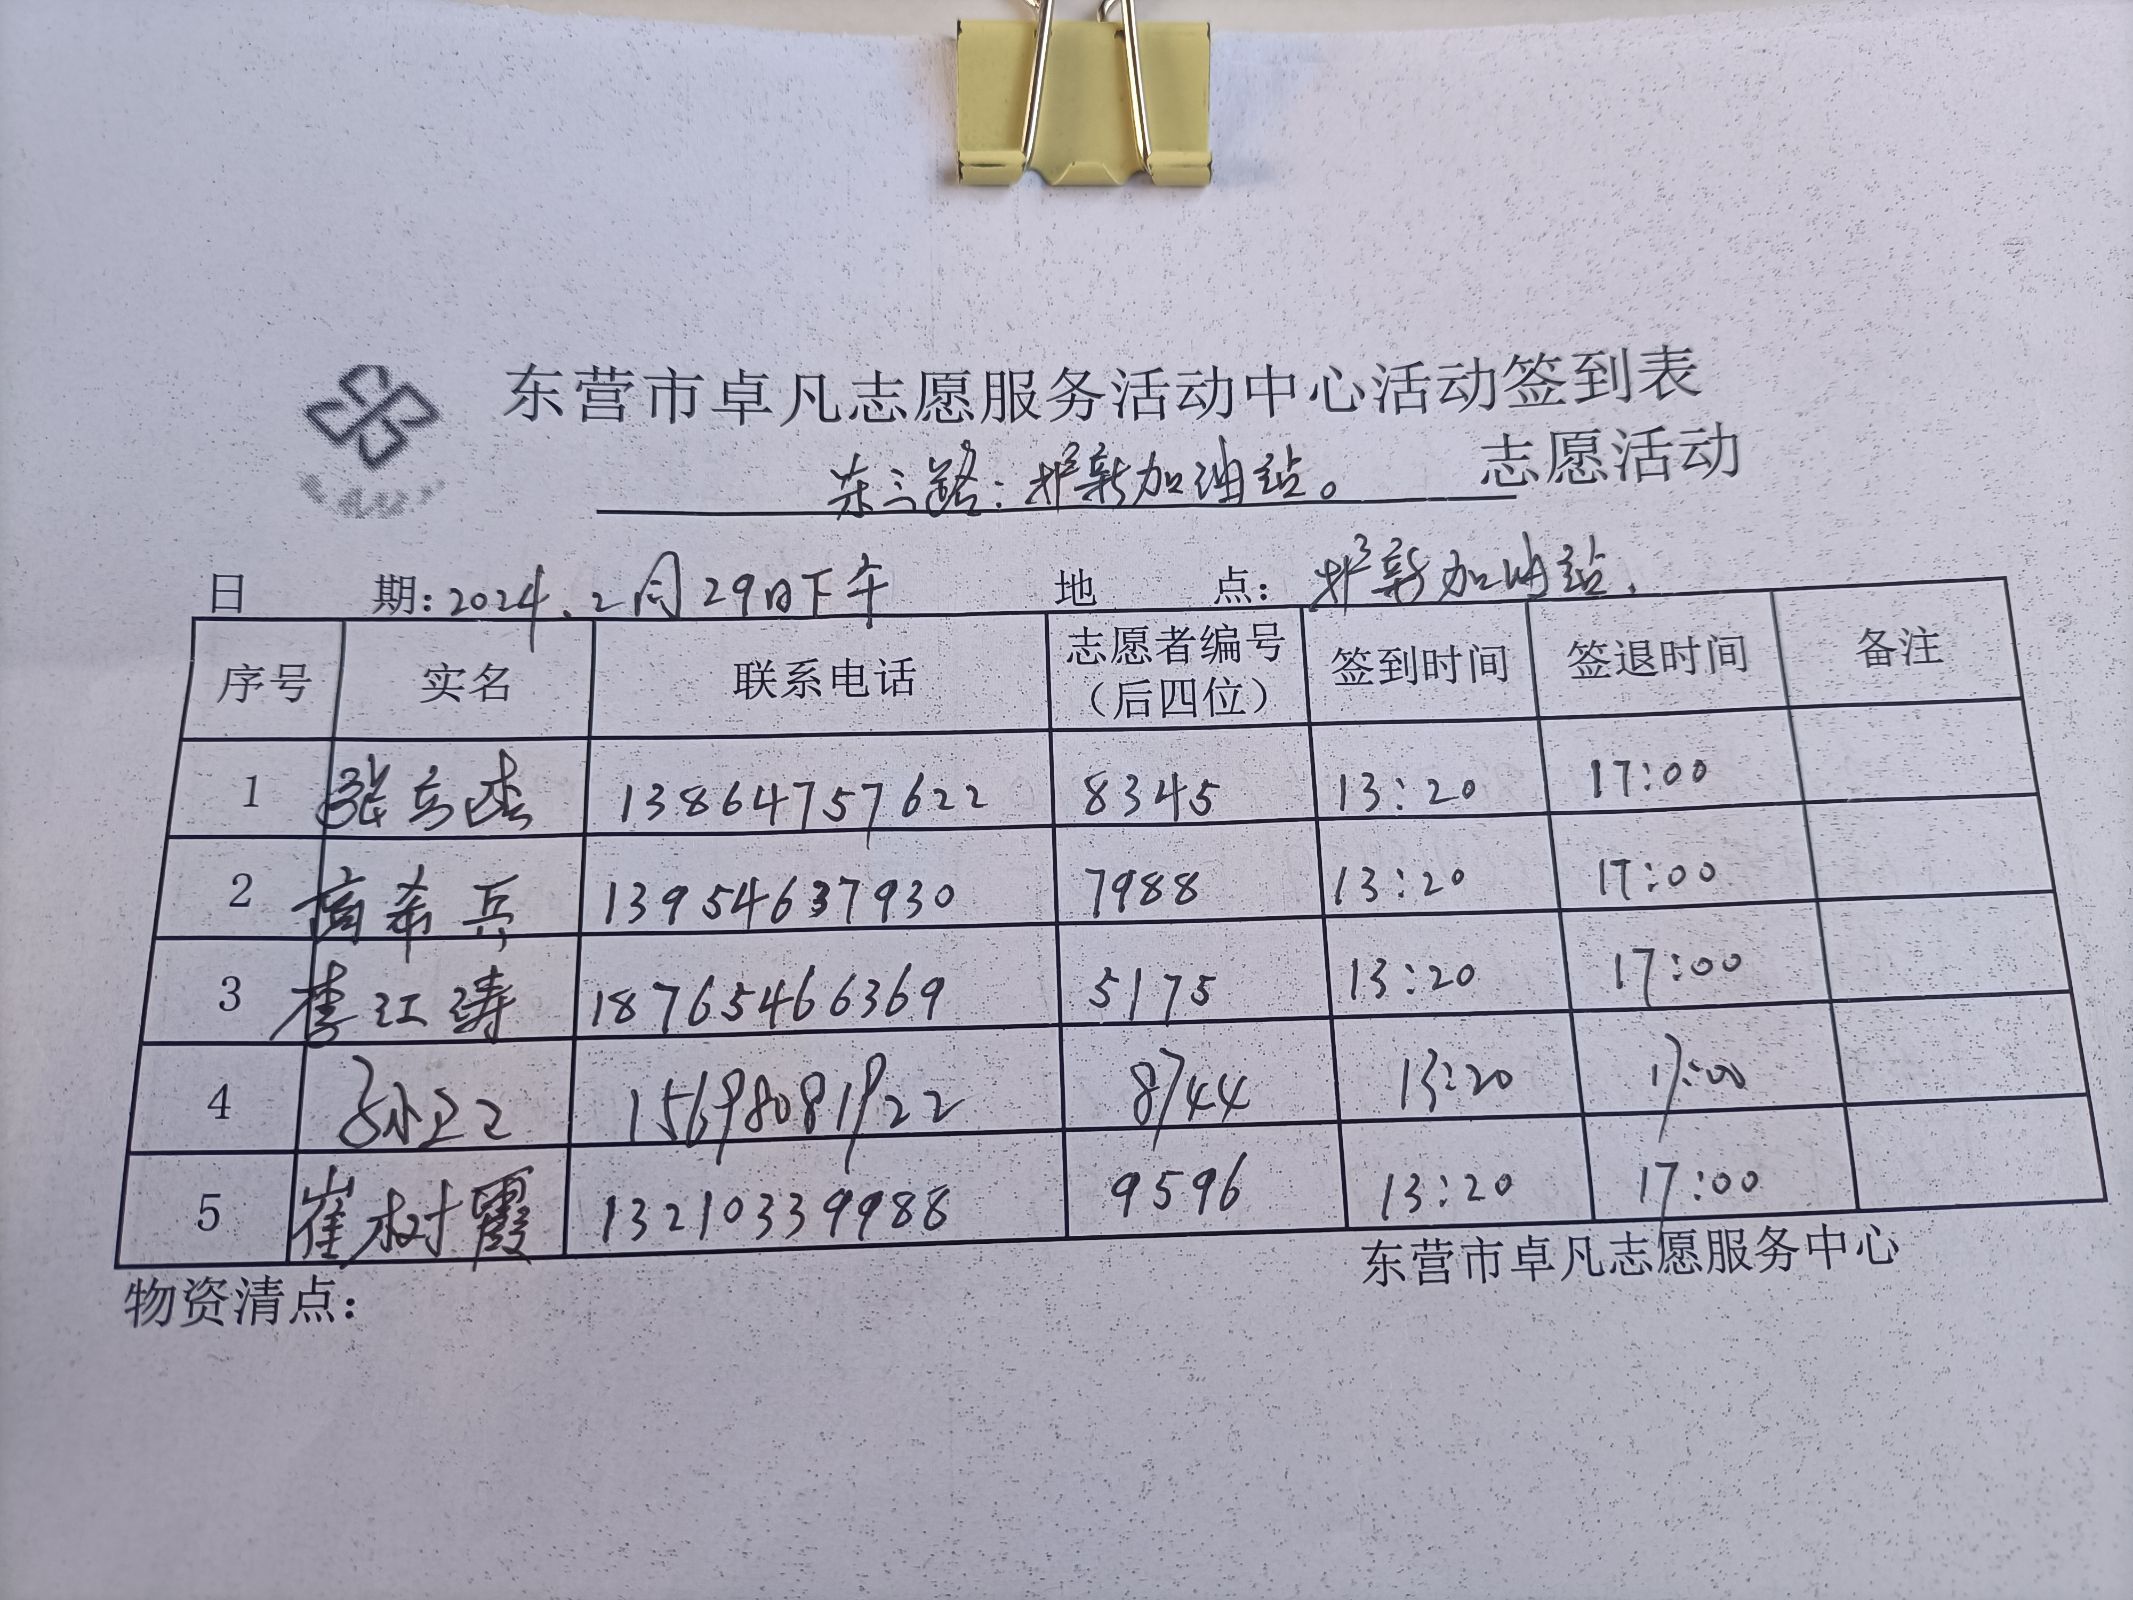 东营市卓凡志愿服务活动中心活动签到表
东三路：新加油站。 志愿活动
日 期：2024.2月29日下午 地 点：新加油站.
序号 实名 联系电话 志愿者编号（后四位） 签到时间 签退时间 备注
1 张 13864757622 8345 13:20 17:00
2 商希兵 13954637930 7988 13:20 17:00
3 李江涛 18765466369 5175 13:20 17:00
4 孙 15698081922 8744 13:20 17:00
5 崔树霞 13210339988 9596 13:20 17:00
物资清点： 东营市卓凡志愿服务中心